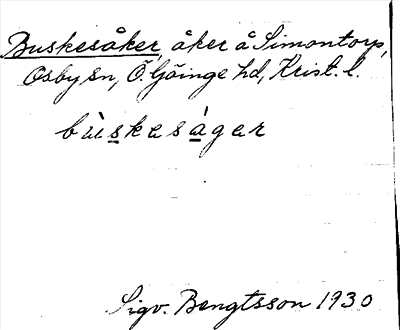 Buskesåker, åker å Simontorp,
Osby sn, Ö. Göinge hd, Krist. l.
bùskesàger
Sigv. Bengtsson 1930